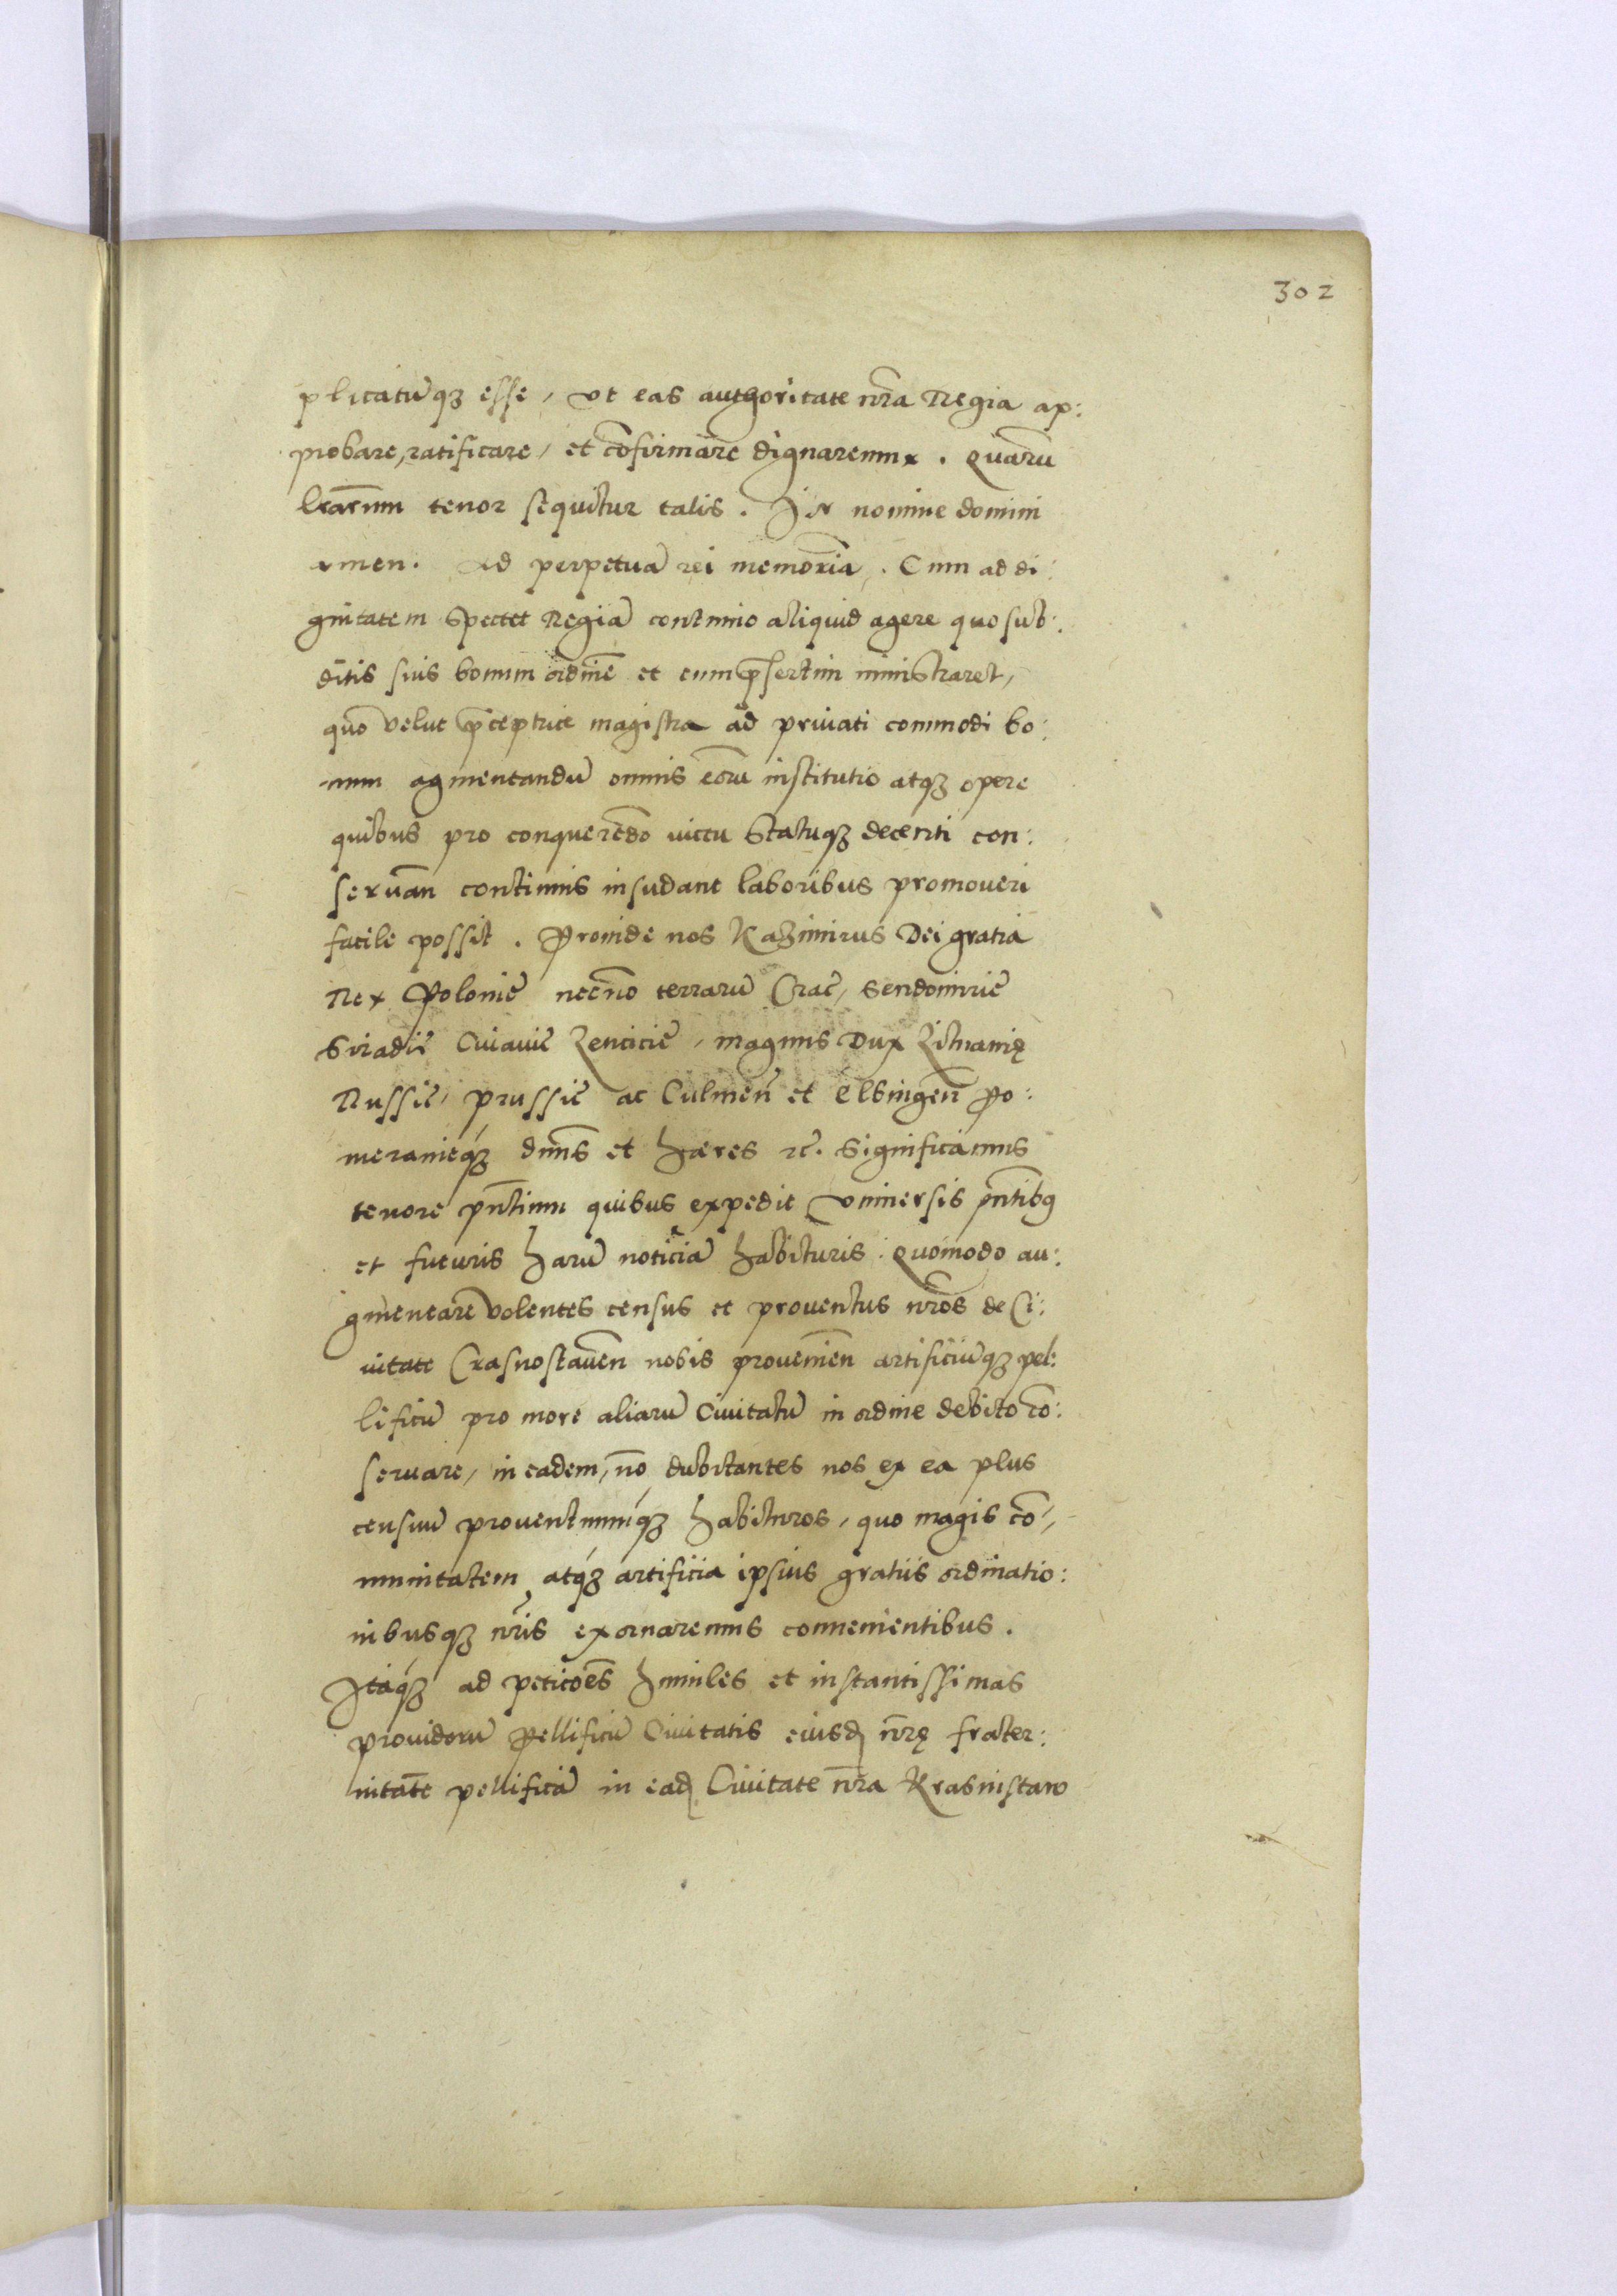 302
plicatũqꝫ esse, vt eas authoritate nr̃a Regia ap:
probare, ratificare, et cõfirmare dignaremur. Quarũ
lr̃arum tenor sequitur talis. In nomine domini
amen. Ad perpetuã rei memoriã. Cum ad di:
gnitatem spectet Regiã continuo aliquid agere quo sub:
ditis suis bonum ordinẽ et cum p̃sertim ministraret,
quo velut p̃ceptrice magistra ad priuati commodi bo:
num agmentandũ omnis eorũ institutio atqꝫ opere
quibus pro conquerẽdo victu statuqꝫ decenti con:
seruañ continuis insudant laboribus promoueri
facile possit. Proinde nos Kazimirus Dei gratia
Rex Poloniẽ necnõ terrarũ Crac̃, Sendomiriẽ
Siradiẽ Cuiauiẽ Lenciciẽ, magnus Dux Lithuanię
Russiẽ, prussiẽ ac Culmeñ et Elbingeñ Po:
meranieqꝫ dnũs et hæres ꝛc̃. Significamus
tenore pñtium quibus expedit vniuersis pñtibꝯ
et futuris harũ noticiã habituris. Quomodo au:
gmentare volentes census et prouentus nr̃os de Ci:
uitate Crasnostaueñ nobis prouenieñ artificiũqꝫ pel:
lificũ pro more aliarũ Ciuitatũ in ordine debito cõ:
seruare, in eadem, nõ dubitantes nos ex ea plus
censuũ prouentuumqꝫ habituros, quo magis cõ,
munitatem atqꝫ artificia ipsius gratiis ordinatio:
nibusqꝫ nr̃is exornaremus conuenientibus.
Itaqꝫ ad peticõẽs humiles et instantissimas
prouidorũ Pellificũ Ciuitatis eiusd̃ nr̃ę frater:
nitatẽ pellificã in ead̃ Ciuitate nr̃a Krasnistaw